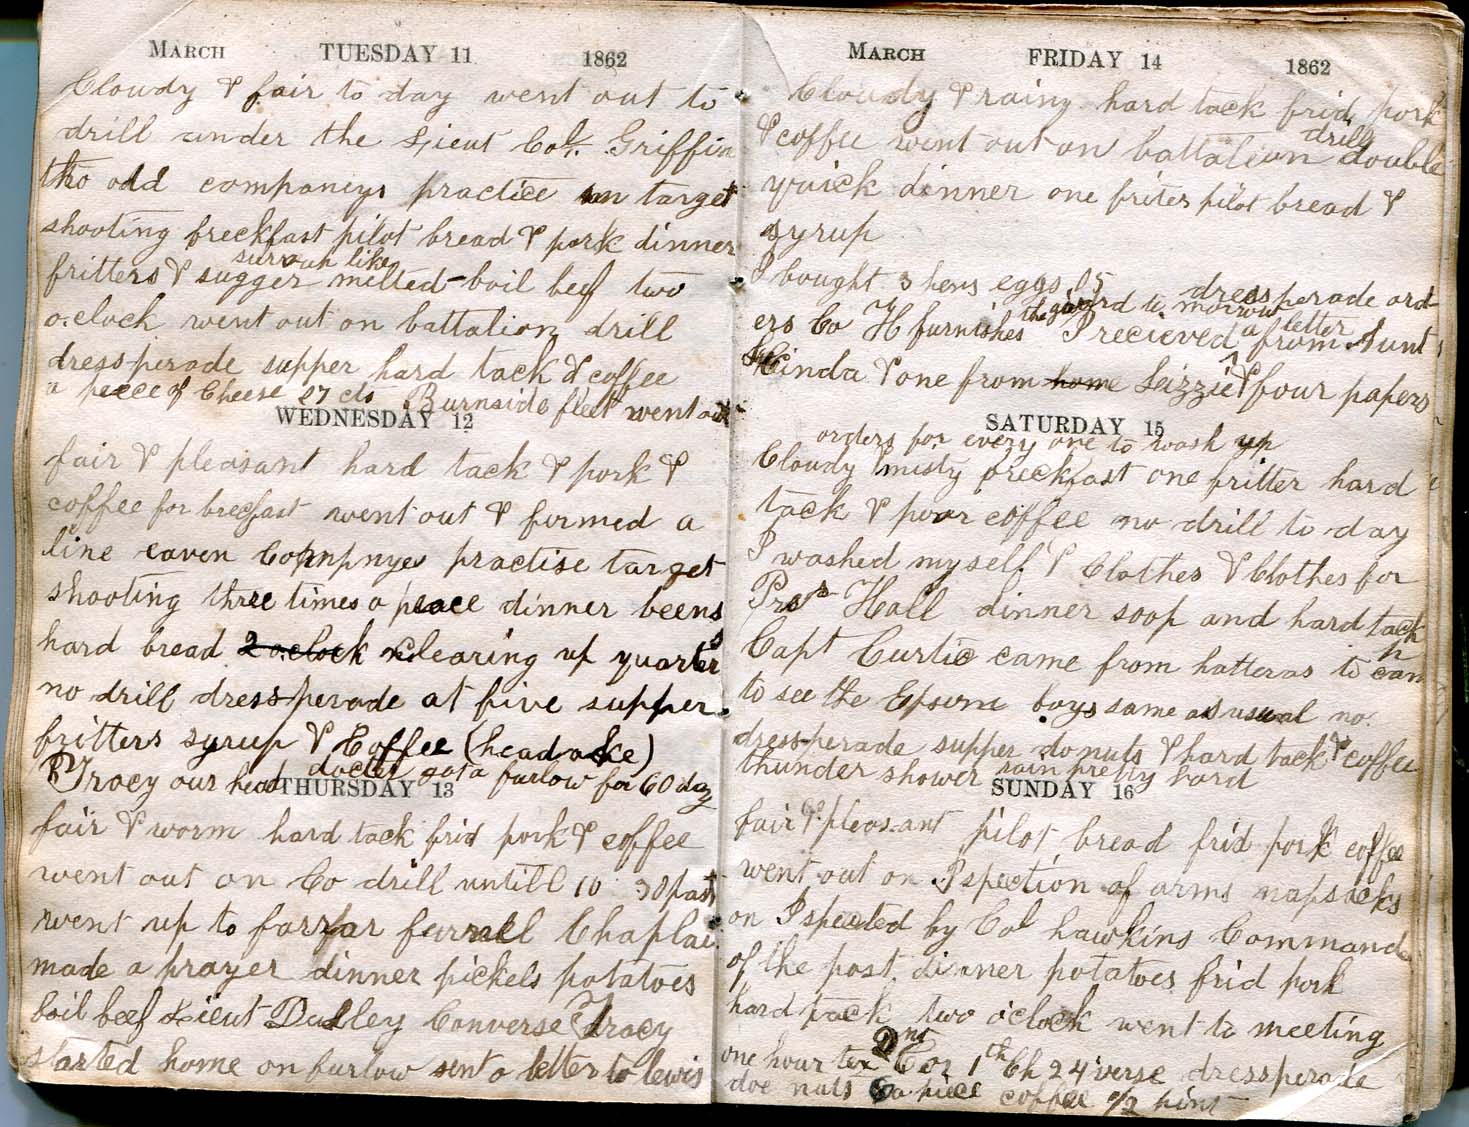 MARCH TUESDAY 11 1862
Cloudy & fair to day went out to
drill under the Lieut Col. Griffin
tho odd companeys practice in target
shooting breckfast pilot bread & pork dinner
surrouph like
fritters & sugger melted - boil beef two
o.clock went out on battalion drill
dress-perade supper hard tack & coffee
a peece of Cheese 27 cts Burnside fleet went out
WEDNESDAY 12
fair & pleasant hard tack & pork &
coffee for brecfast went out & formed a
line eaven Compnyes practise target
shooting three times a peace dinner beens
hard bread 2 o.clock clearing up quarters
no drill dress-perade at five supper
fritters syrup & Coffee (head ake)
Tracy our head docter got a furlow for 60 day
THURSDAY 13
fair & worm hard tack frid pork & coffee
went out on Co drill untill 10 30 past
went up to furrall Chaplai
made a prayer dinner pickels potatoes
boil beef Lieut Dudley Converse Tracy
started home on furlow sent a letter to lewis
MARCH FRIDAY 14 1862
Cloudy & rainy hard tack frid pork
& coffee went out on battalion drill double
quick dinner one friter pilot bread &
syrup
I bought 3 hens eggs 05 dress perade ord
ers Co H furnishes the guard to morrow I recieved a letter from Aunt
Cinda & one from home Lizzie & four papers
SATURDAY 15
orders for every one to wash up
Cloudy misty breckfast one fritter hard
tack & poor coffee no drill to day
I washed myself & Clothes & Clothes for
Hall dinner soop and hard tack
Capt Curtis came from hatteras to cam
to see the Epsom boys same as usual no
dress-perade supper donuts & hard tack & coffee
thunder shower rain pretty hard
SUNDAY 16
fair & pleasant pilot bread frid pork coffee
went out on Ispection of arms napsacks
on Ispected by Col hawkins Command
of the post. dinner potatoes frid pork
hard tack two o'clock went to meeting
one hour tex 2nd Cor 1th Ch 24 verse dressperade
doe nuts a piece coffee 1/2 pint